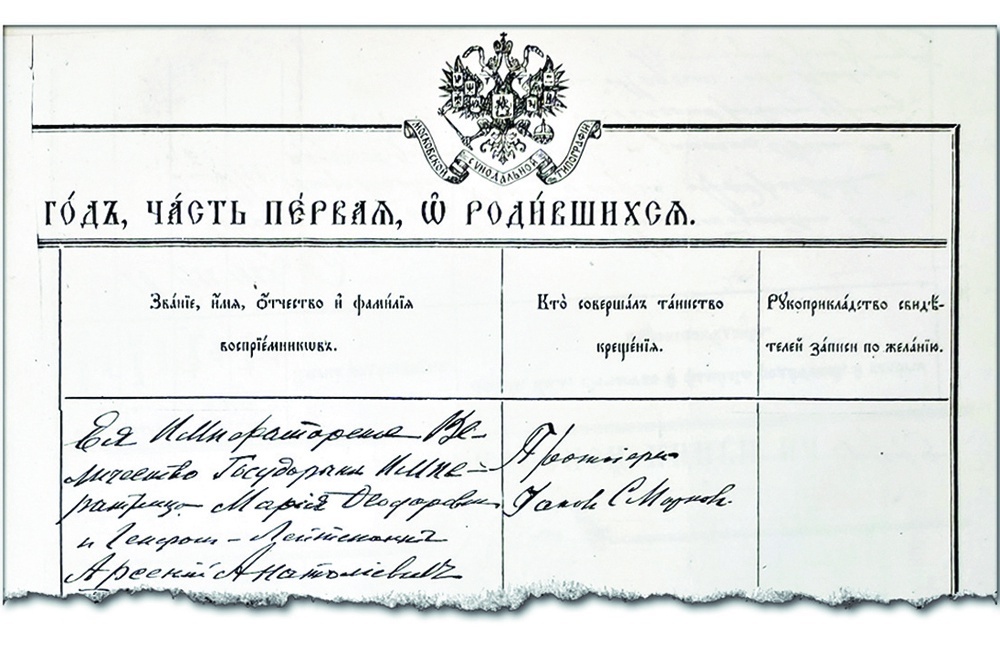 МОСКОВСКОЙ СѴНОДАЛЬНОЙ ТИПОГРАФІИ
ГО́ДЪ, ЧА́СТЬ ПЕ́РВАѦ, Ѽ РОДИ́ВШИХСѦ.
Зва́нїе, и҆́мѧ, ѻ҆́тчество и҆ фами́лїѧ
воспрїе́мникѡвъ.
Кто̀ соверша́лъ та́инство
креще́нїѧ.
Рꙋкоприкла́дство свидѣ́-
телей за́писи по жела́нїю.
Ея Императорское Ве-
личество Государыня Импе-
ратрица Марія Ѳеодоровна
и Генерал-Лейтенантъ
Арсеній Анатоліевичъ
Протоіерей
Іаковъ Смирновъ.